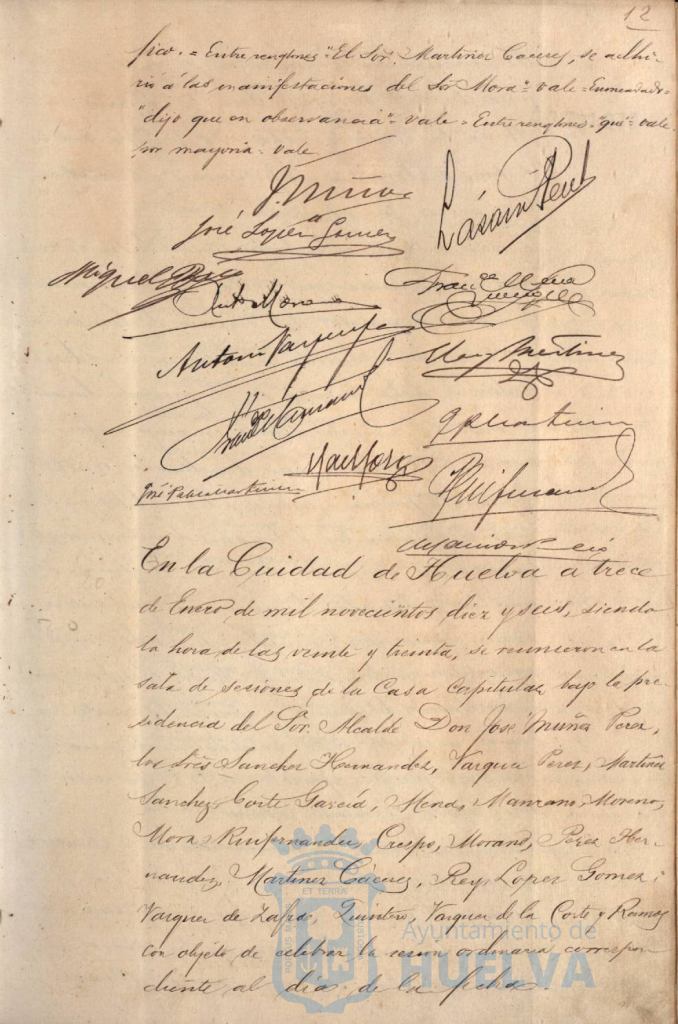 12
fico. = Entre renglones "El Sor. Martinez Caceres, se adhi-
rió á las manifestaciones del Sor Mora" - vale = Enmendado =
"dijo que en observancia" - vale - Entre renglones - "que" - vale
por mayoria - vale
J. Muñoz
Lázaro Perez
José Lopez Gomez
Miguel
Anto Moreno
Antonio Vazquez
Martinez
José Pablo Martinez
Ruifernandez
En la Cuidad de Huelva a trece
de Enero de mil novecientos diez y seis, siendo
la hora de las veinte y treinta, se reunieron en la
sala de sesiones de la Casa Capitular, bajo la pre-
sidencia del Sor. Alcalde Don José Muñoz Perez,
los Srēs Sanchez Hernandez, Vazquez Perez, Martinez
Sanchez, Corte Garcia, Mena, Manzano, Moreno,
Mora, Ruifernandez, Crespo, Morano, Pérez Her-
nandez, Martinez Cáceres, Rey, Lopez Gomez,
Vazquez de Zafra, Quintero, Vazquez de la Corte y Ramos
con objeto de celebrar la sesion ordinaria correspon-
diente al dia de la fecha.
Ayuntamiento de
HUELVA